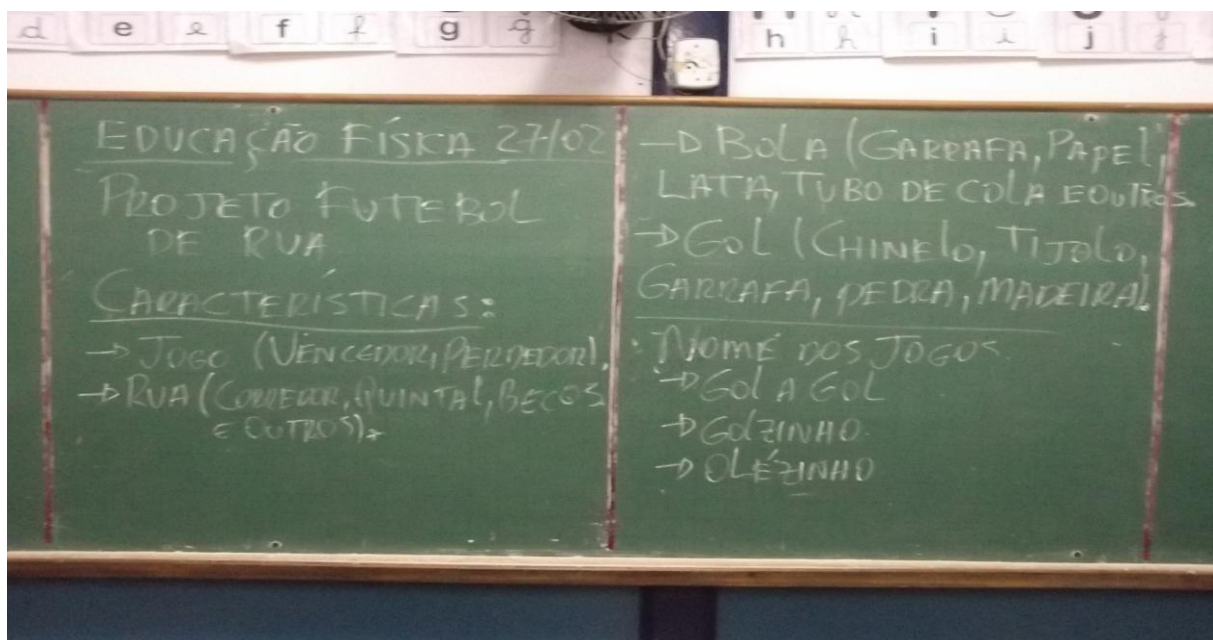 d e e f f g g h h i i j j
EDUCAÇÃO FÍSICA 27/02
PROJETO FUTEBOL
DE RUA
CARACTERÍSTICAS:
→ JOGO (VENCEDOR, PERDEDOR).
→ RUA (CORREDOR, QUINTAL, BECOS
E OUTROS).
→ BOLA (GARRAFA, PAPEL,
LATA, TUBO DE COLA E OUTROS.
→ GOL (CHINELO, TIJOLO,
GARRAFA, PEDRA, MADEIRA).
NOME DOS JOGOS.
→ GOL A GOL
→ GOLZINHO.
→ OLÉZINHO